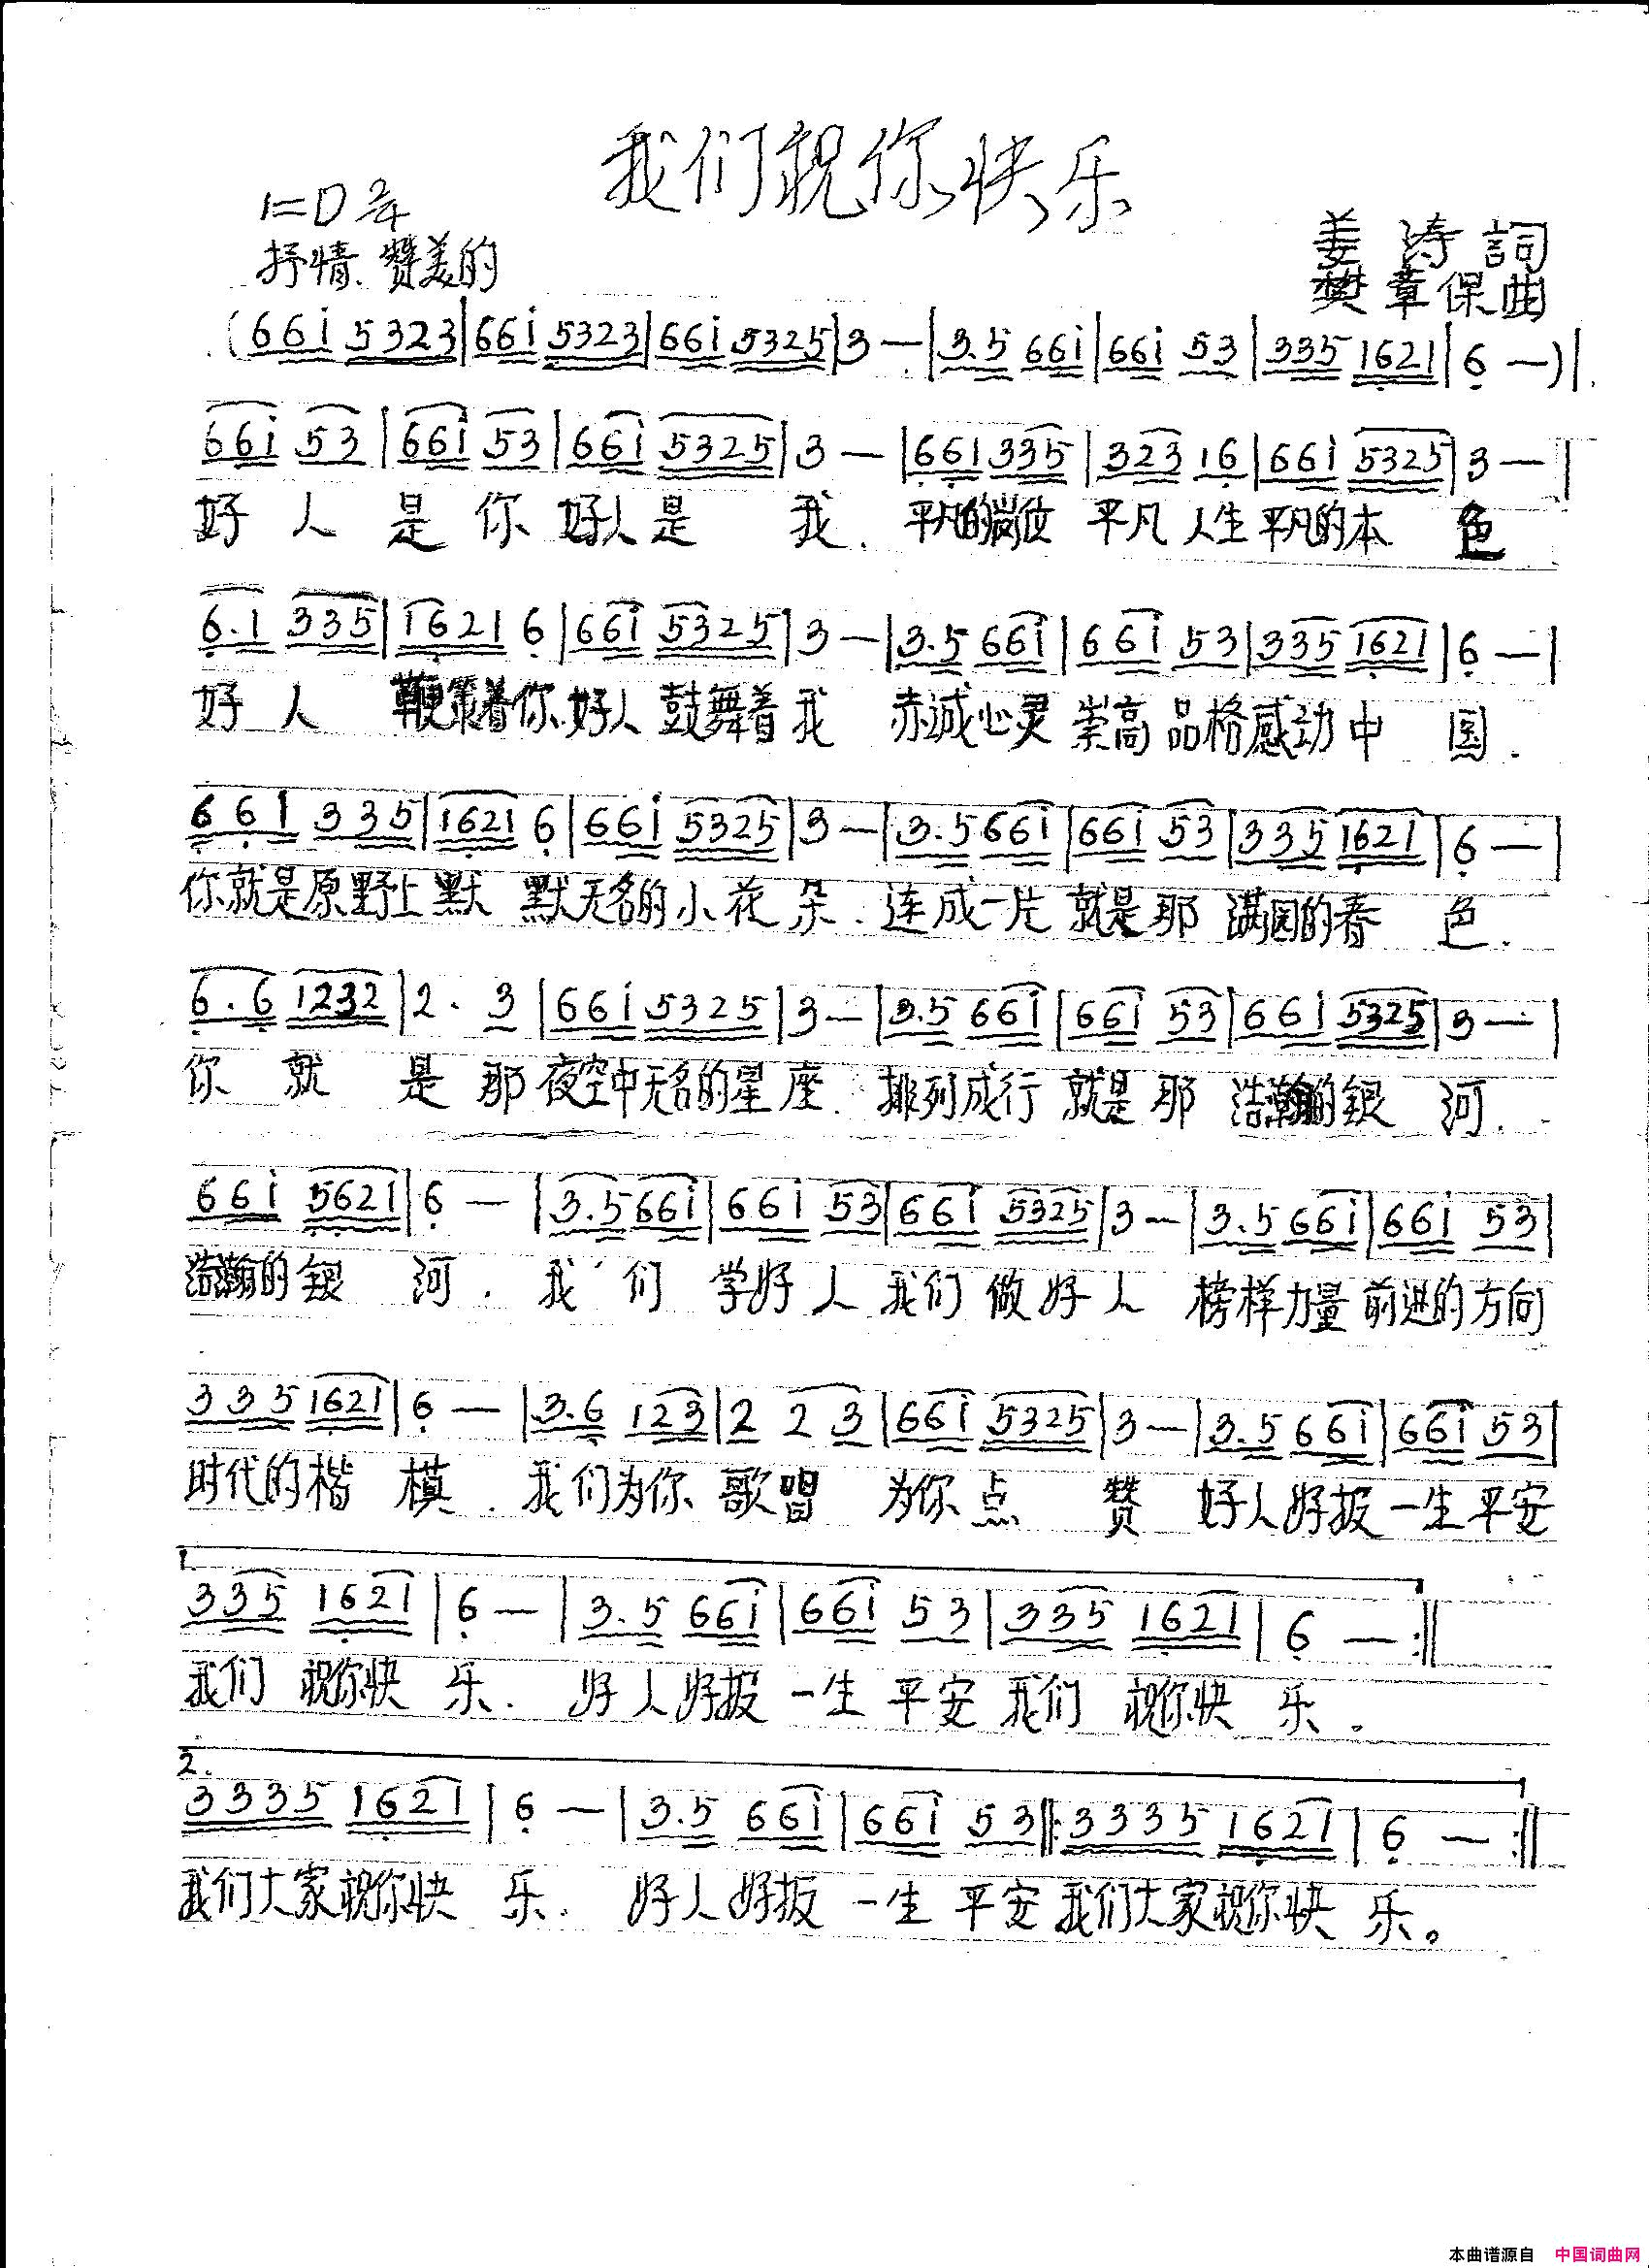 我们祝你快乐
1=D 2/4
抒情、赞美的
姜涛詞
樊章保曲
(66i 5323|66i 5323|66i 5325|3 —|3.5 66i|66i 53|335 1621|6 —)|
66i 53|66i 53|66i 5325|3 —|661 335|323 16|661 5325|3 —|
好人是你好人是我.平凡的岗位平凡人生平凡的本色
6.1 335|1621 6|66i 5325|3 —|3.5 66i|66i 53|335 1621|6 —|
好人鞭策着你.好人鼓舞着我 赤诚心灵崇高品格感动中国.
661 335|1621 6|66i 5325|3 —|3.5 66i|66i 53|335 1621|6 —|
你就是原野上默默无名的小花朵.连成一片就是那满园的春色.
6.6 1232|2. 3|66i 5325|3 —|3.5 66i|66i 53|661 5325|3 —|
你就是那夜空中无名的星座.排列成行就是那浩瀚的银河.
66i 5621|6 —|3.5 66i|66i 53|66i 5325|3 —|3.5 66i|66i 53|
浩瀚的银河.我们学好人我们做好人榜样力量前进的方向
335 1621|6 —|3.6 123|2 2 3|66i 5325|3 —|3.5 66i|66i 53|
时代的楷模.我们为你歌唱为你点赞好人好报一生平安
1.
335 1621|6 —|3.5 66i|66i 53|335 1621|6 —:‖
我们祝你快乐.好人好报一生平安我们祝你快乐.
2.
3335 1621|6 —|3.5 66i|66i 53‖:3335 1621|6 —:‖
我们大家祝你快乐.好人好报一生平安我们大家祝你快乐。
本曲谱源自 中国词曲网